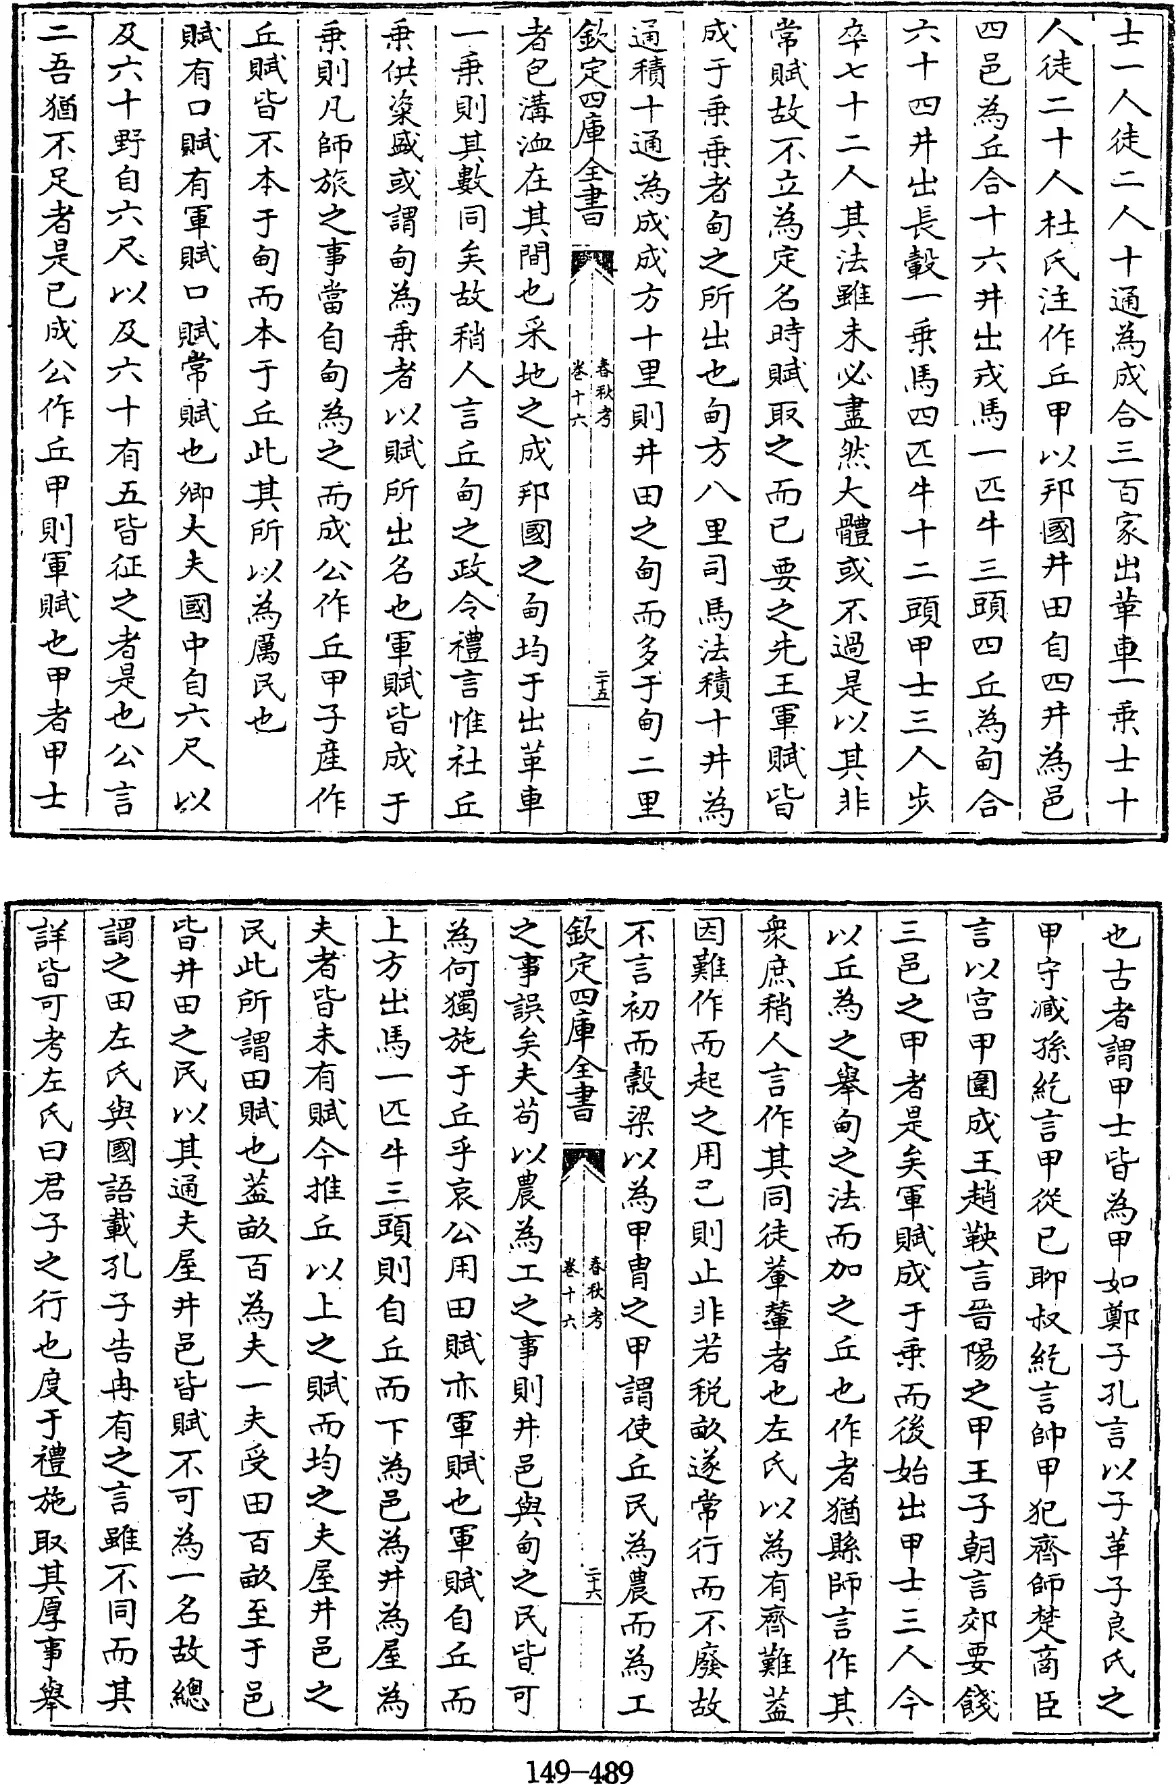 士一人徒二人十通為成合三百家出革車一乗士十
人徒二十人杜氏注作丘甲以邦國井田自四井為邑
四邑為丘合十六井出戎馬一匹牛三頭四丘為甸合
六十四井出長轂一乗馬四匹牛十二頭甲士三人歩
卒七十二人其法雖未必盡然大體或不過是以其非
常賦故不立為定名時賦取之而已要之先王軍賦皆
成于乗乗者甸之所出也甸方八里司馬法積十井為
通積十通為成成方十里則井田之甸而多于甸二里
欽定四庫全書
春秋考
卷十六
二十五
者包溝洫在其間也采地之成邦國之甸均于出革車
一乗則其數同矣故稍人言丘甸之政令禮言惟社丘
乗供粢盛或謂甸為乗者以賦所出名也軍賦皆成于
乗則凡師旅之事當自甸為之而成公作丘甲子産作
丘賦皆不本于甸而本于丘此其所以為厲民也
賦有口賦有軍賦口賦常賦也卿大夫國中自六尺以
及六十野自六尺以及六十有五皆征之者是也公言
二吾猶不足者是已成公作丘甲則軍賦也甲者甲士
也古者謂甲士皆為甲如鄭子孔言以子革子良氏之
甲守臧孫紇言甲從已耶叔紇言帥甲犯齊師楚商臣
言以宫甲圍成王趙鞅言晉陽之甲王子朝言郊要餞
三邑之甲者是矣軍賦成于乗而後始出甲士三人今
以丘為之舉甸之法而加之丘也作者猶縣師言作其
衆庶稍人言作其同徒輂輦者也左氏以為有齊難葢
因難作而起之用己則止非若税畝遂常行而不廢故
不言初而穀梁以為甲胄之甲謂使丘民為農而為工
欽定四庫全書
春秋考
卷十六
二十六
之事誤矣夫苟以農為工之事則井邑與甸之民皆可
為何獨施于丘乎哀公用田賦亦軍賦也軍賦自丘而
上方出馬一匹牛三頭則自丘而下為邑為井為屋為
夫者皆未有賦今推丘以上之賦而均之夫屋井邑之
民此所謂田賦也葢畝百為夫一夫受田百畝至于邑
皆井田之民以其通夫屋井邑皆賦不可為一名故總
謂之田左氏與國語載孔子告冉有之言雖不同而其
詳皆可考左氏曰君子之行也度于禮施取其厚事舉
149-489